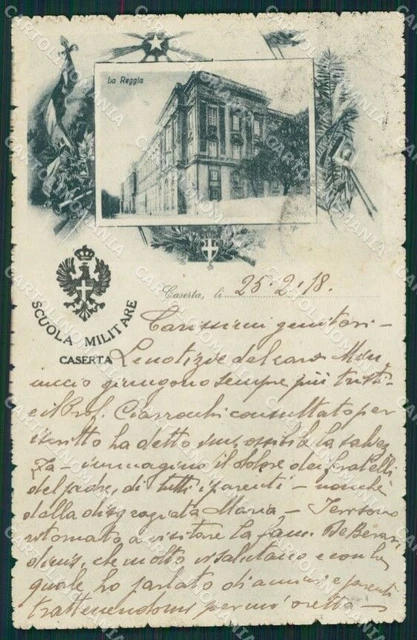 La Reggia
SCUOLA MILITARE
CASERTA
Caserta, li 25-2-18.
Carissimi genitori –
Le notizie del caro Min
uccio giungono sempre più tristi
e il Prof. consultato per
iscritto ha detto la salvez
za – immagino il dolore dei fratelli
del padre, di tutti i parenti – nonché
della disgraziata Maria – Ieri sono
ritornato a visitare la fam. De Berar
dinis, che molto vi salutano e con la
quale ho parlato di amici e parenti
trattenendomi per un'oretta –